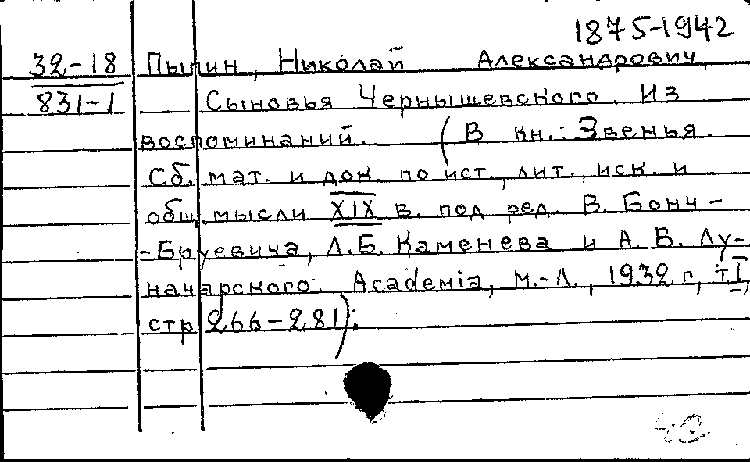 1875-1942
32-18 Пыпин, Николай Александрович
831-1 Сыновья Чернышевского. Из
воспоминаний. (В кн.: Звенья.
Сб. мат. и док. по ист., лит. иск. и
общ. мысли XIX в. под ред. В. Бонч-
-Бруевича, Л.Б. Каменева и А. В. Лу-
начарского. Academia, М.-Л., 1932 г., т. I,
стр 266-281).